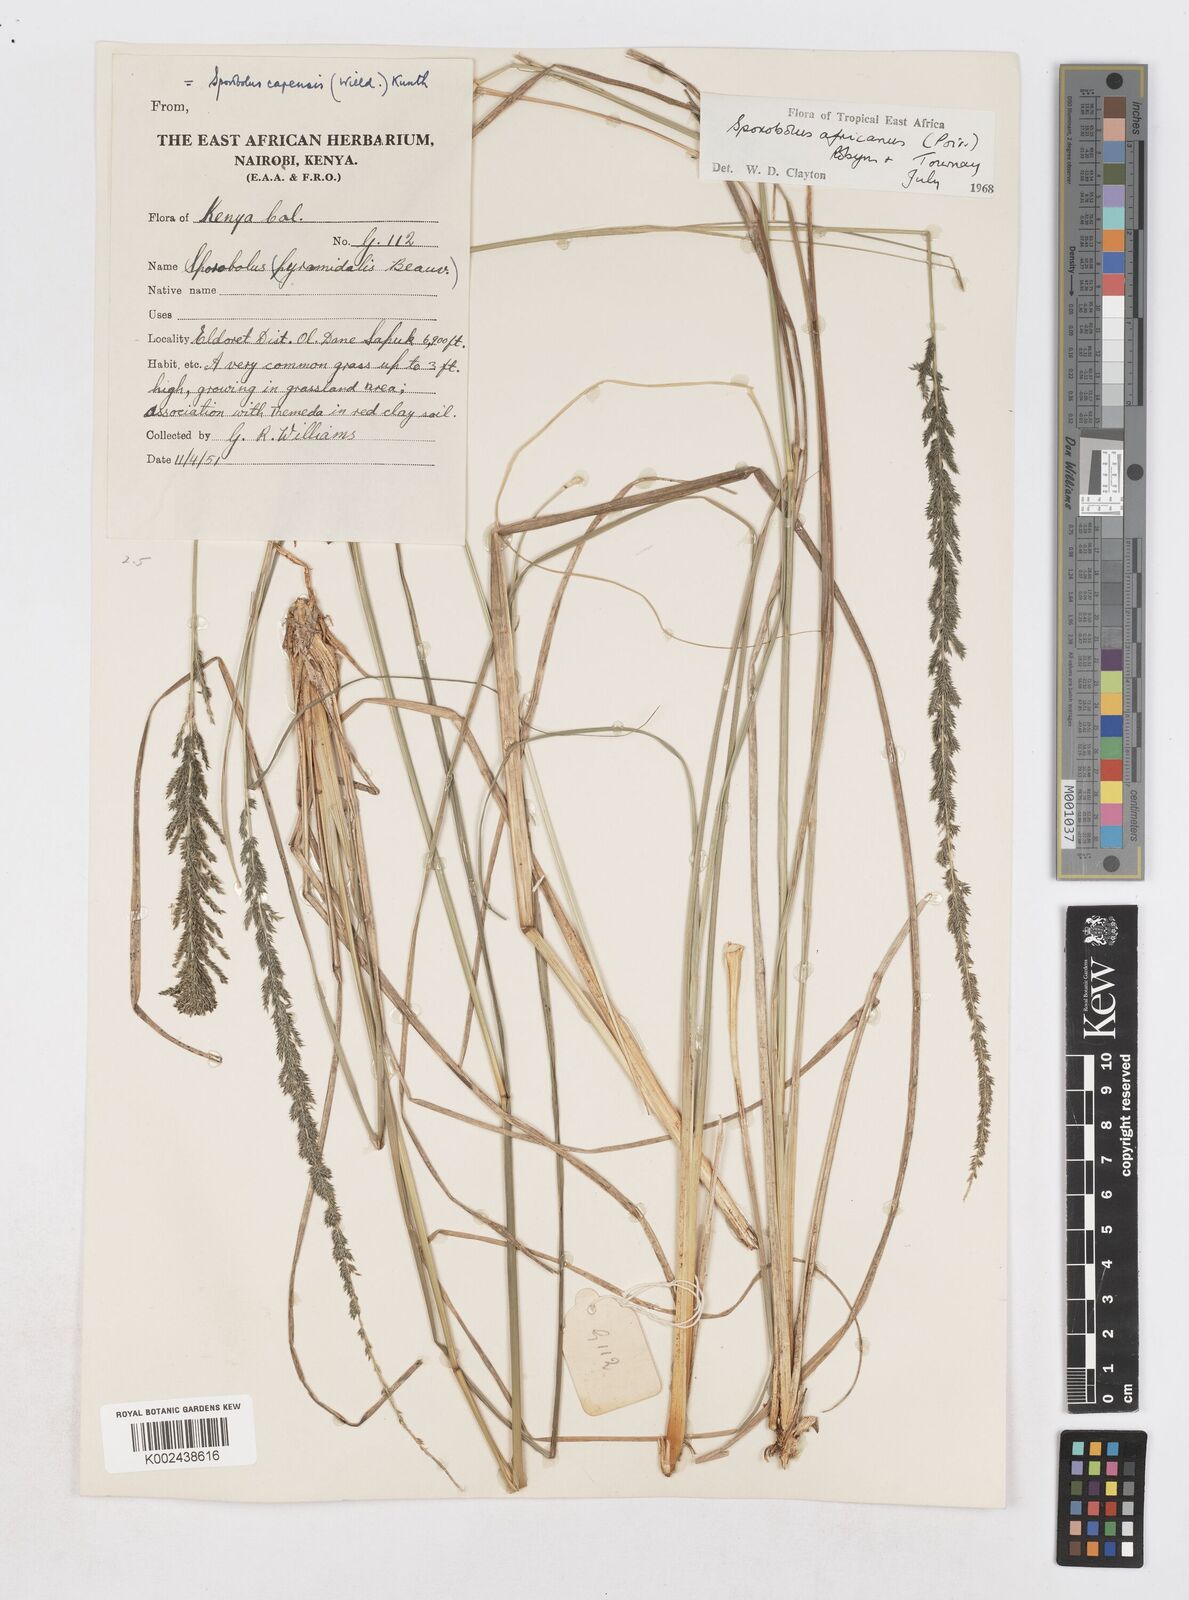 = Sporobolus capensis (Willd.) Kunth
From,
THE EAST AFRICAN HERBARIUM,
NAIROBI, KENYA.
(E.A.A. & F.R.O.)
Flora of Kenya Col.
No. G. 112
Name Sporobolus (pyramidalis Beauv.)
Native name
Uses
Locality Eldoret Dist. Ol. Dane Sapuk 6,900 ft.
Habit, etc. A very common grass up to 3 ft.
high, growing in grassland area;
association with Themeda in red clay soil.
Collected by G. R. Williams
Date 11/4/51
Flora of Tropical East Africa
Sporobolus africanus (Poir.)
Robyns & Tournay
Det. W. D. Clayton July 1968
25
G112
ROYAL BOTANIC GARDENS KEW
K002438616
inches
Don Williams
M001037
centimeters
Royal Botanic Gardens
Kew
0 1 2 3 4 5 6 7 8 9 10
cm
copyright reserved